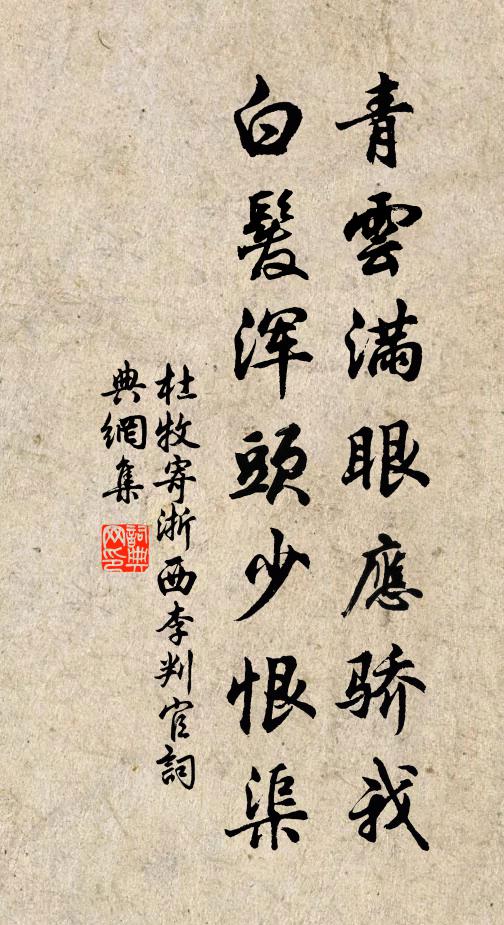 青雲滿眼應骄我
白髮浑頭少恨渠
杜牧寄浙西李判官詞
典網集
詞典
网印